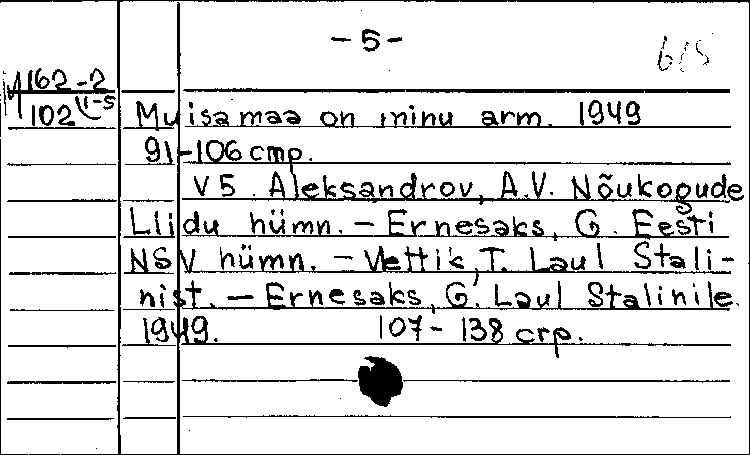 -5-
615
М 162-2
102 (1-5
Muisa maa on minu arm. 1949
91-106 стр.
V5. Aleksandrov, A.V. Nõukogude
Liidu hümn. - Ernesaks, G. Eesti
NSV hümn. - Vettik, T. Laul Stali-
nist. - Ernesaks, G. Laul Stalinile.
1949. 107-138 стр.